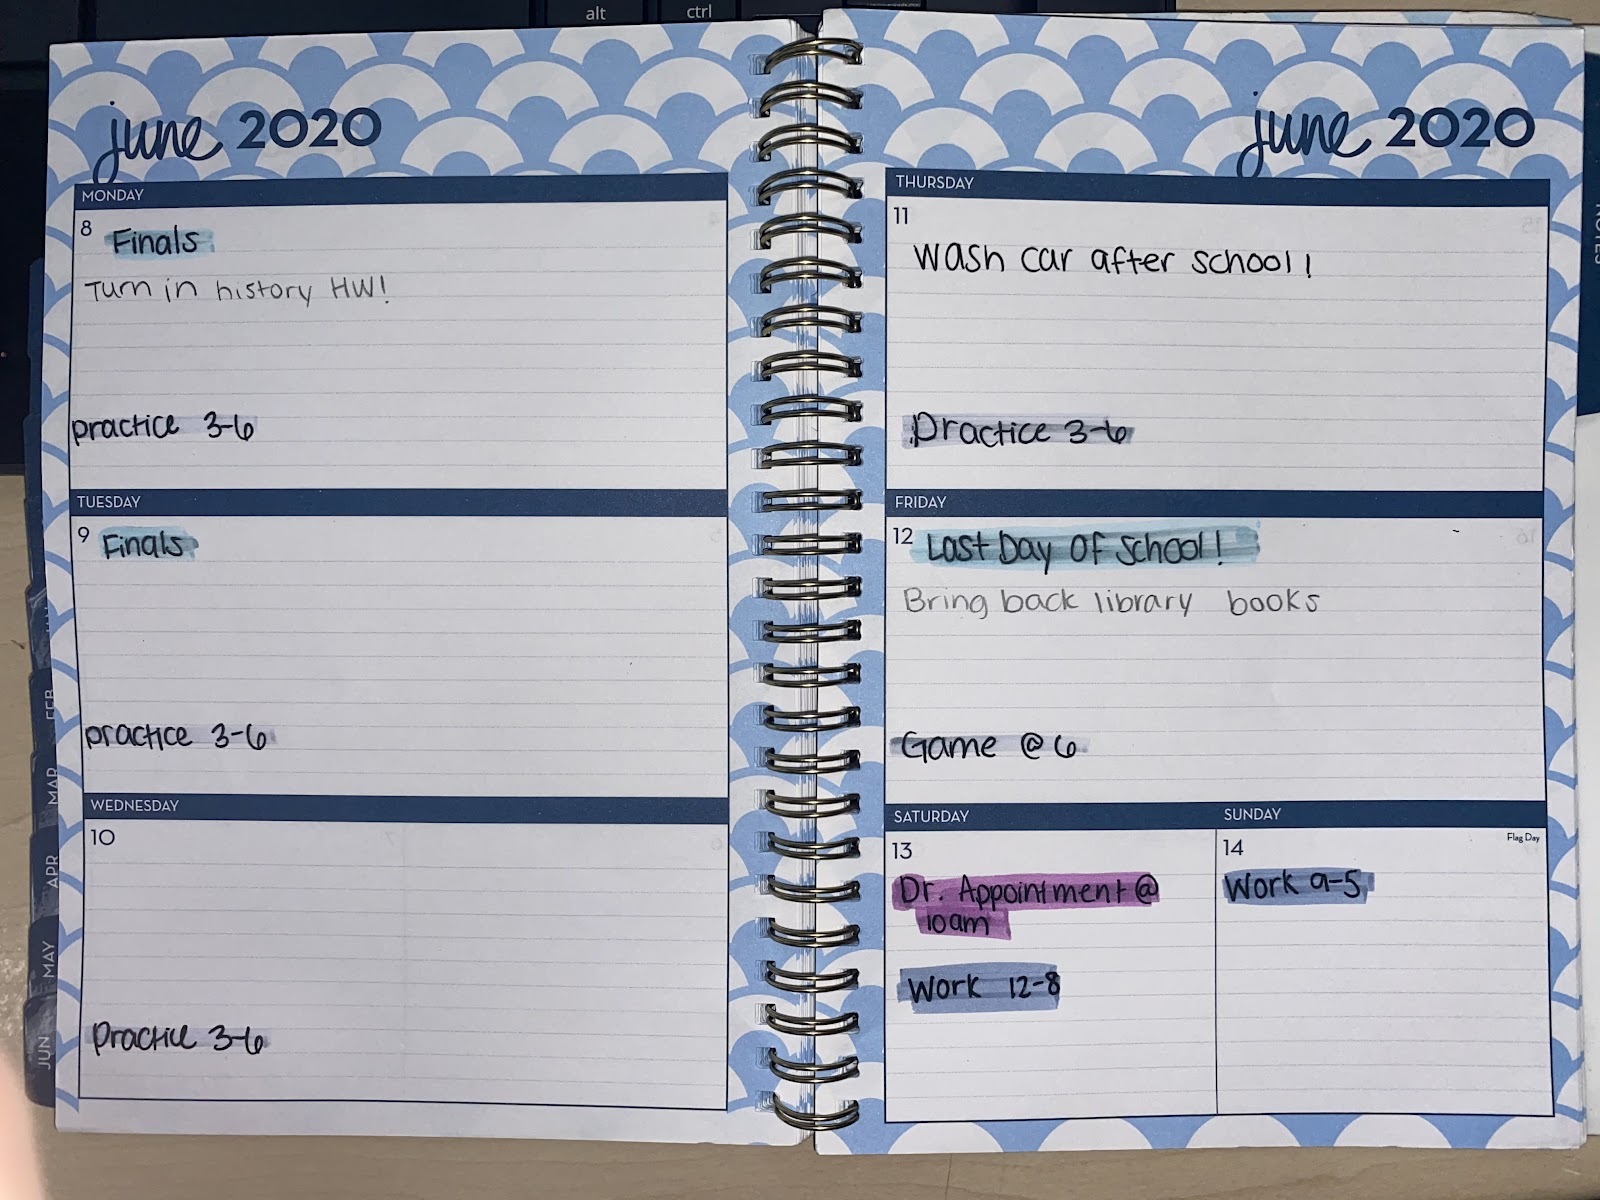 alt
ctrl
june 2020
MONDAY
8
Finals
Turn in history HW!
practice 3-6
TUESDAY
9
Finals
practice 3-6
WEDNESDAY
10
Practice 3-6
june 2020
THURSDAY
11
Wash car after school!
Practice 3-6
FRIDAY
12
Last Day of School!
Bring back library books
Game @ 6
SATURDAY
13
Dr. Appointment @
10am
Work 12-8
SUNDAY
14
Flag Day
Work 9-5
FEB
MAR
APR
MAY
JUN
NOTES